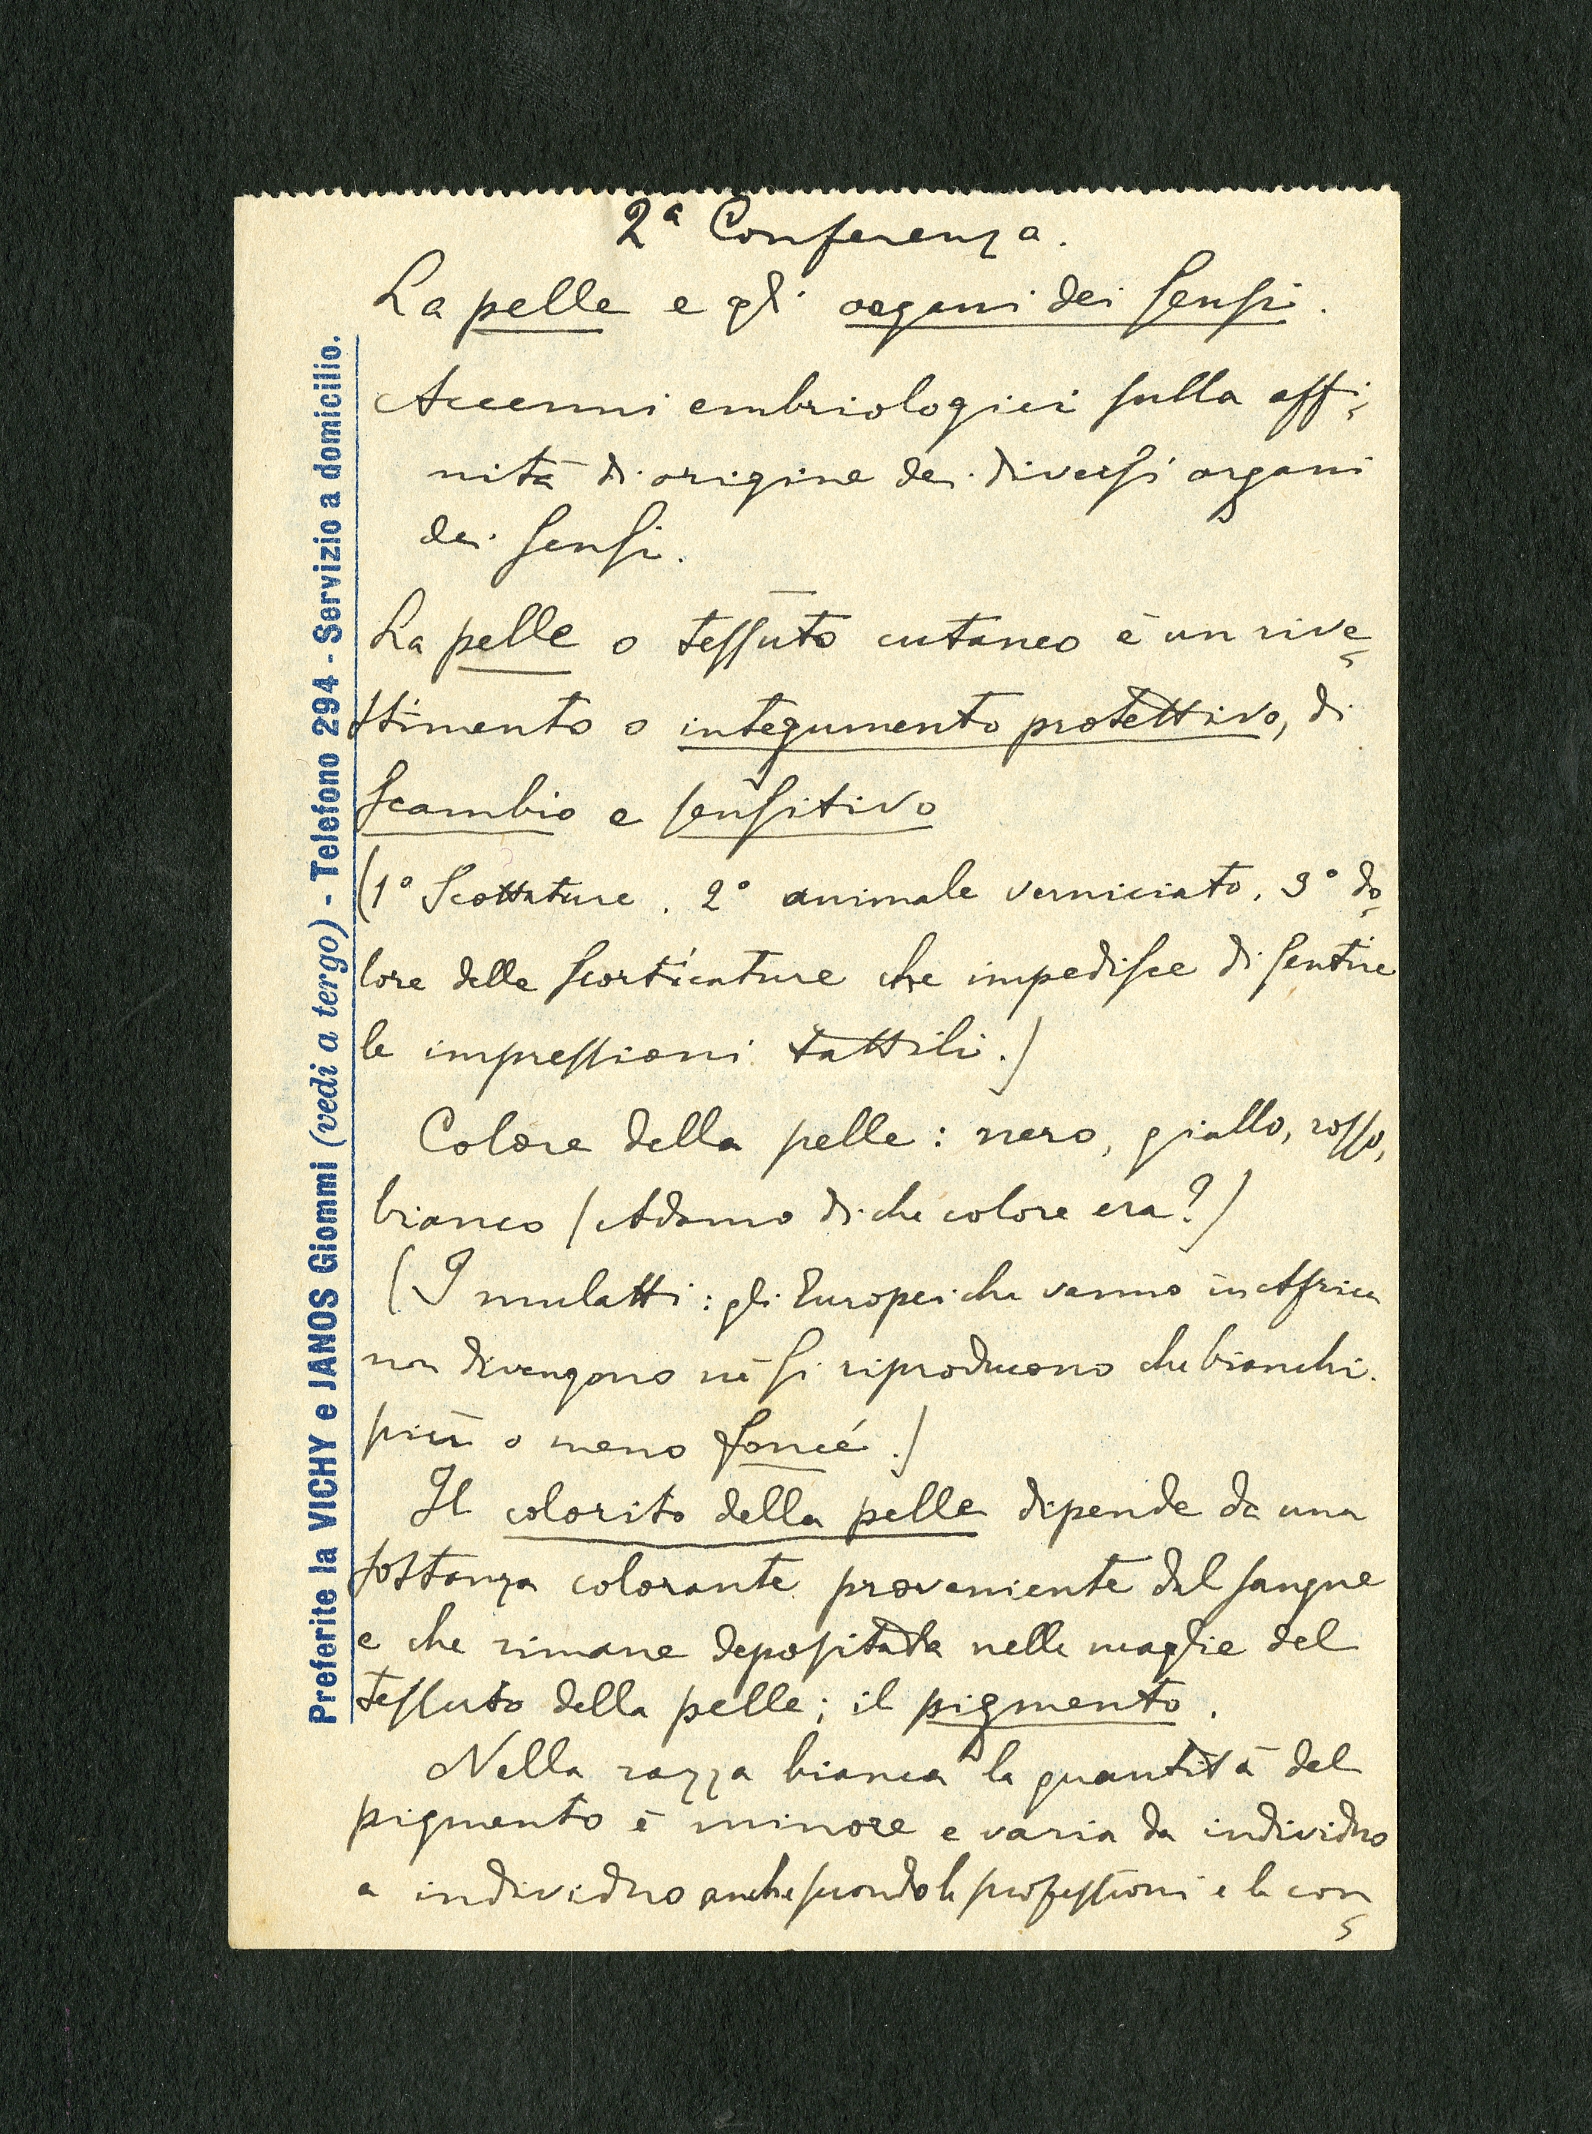 2ª Conferenza.
La pelle e gli organi dei sensi.
Accenni embriologici sulla affi-
nità di origine dei diversi organi
dei sensi.
La pelle o tessuto cutaneo è un rive-
stimento o integumento protettivo, di
scambio e sensitivo
(1° Scottature. 2° animale verniciato. 3° do-
lore delle scorticature che impedisce di sentire
le impressioni tattili.)
Colore della pelle: nero, giallo, rosso,
bianco (Adamo di che colore era?)
(I mulatti: gli Europei che vanno in Africa
non divengono nè si riproducono che bianchi.
più o meno foncé.)
Il colorito della pelle dipende da una
sostanza colorante proveniente dal sangue
e che rimane depositata nelle maglie del
tessuto della pelle; il pigmento.
Nella razza bianca la quantità del
pigmento è minore e varia da individuo
a individuo anche secondo le professioni e le con-
Preferite la VICHY e JANOS Giommi (vedi a tergo) - Telefono 294 - Servizio a domicilio.